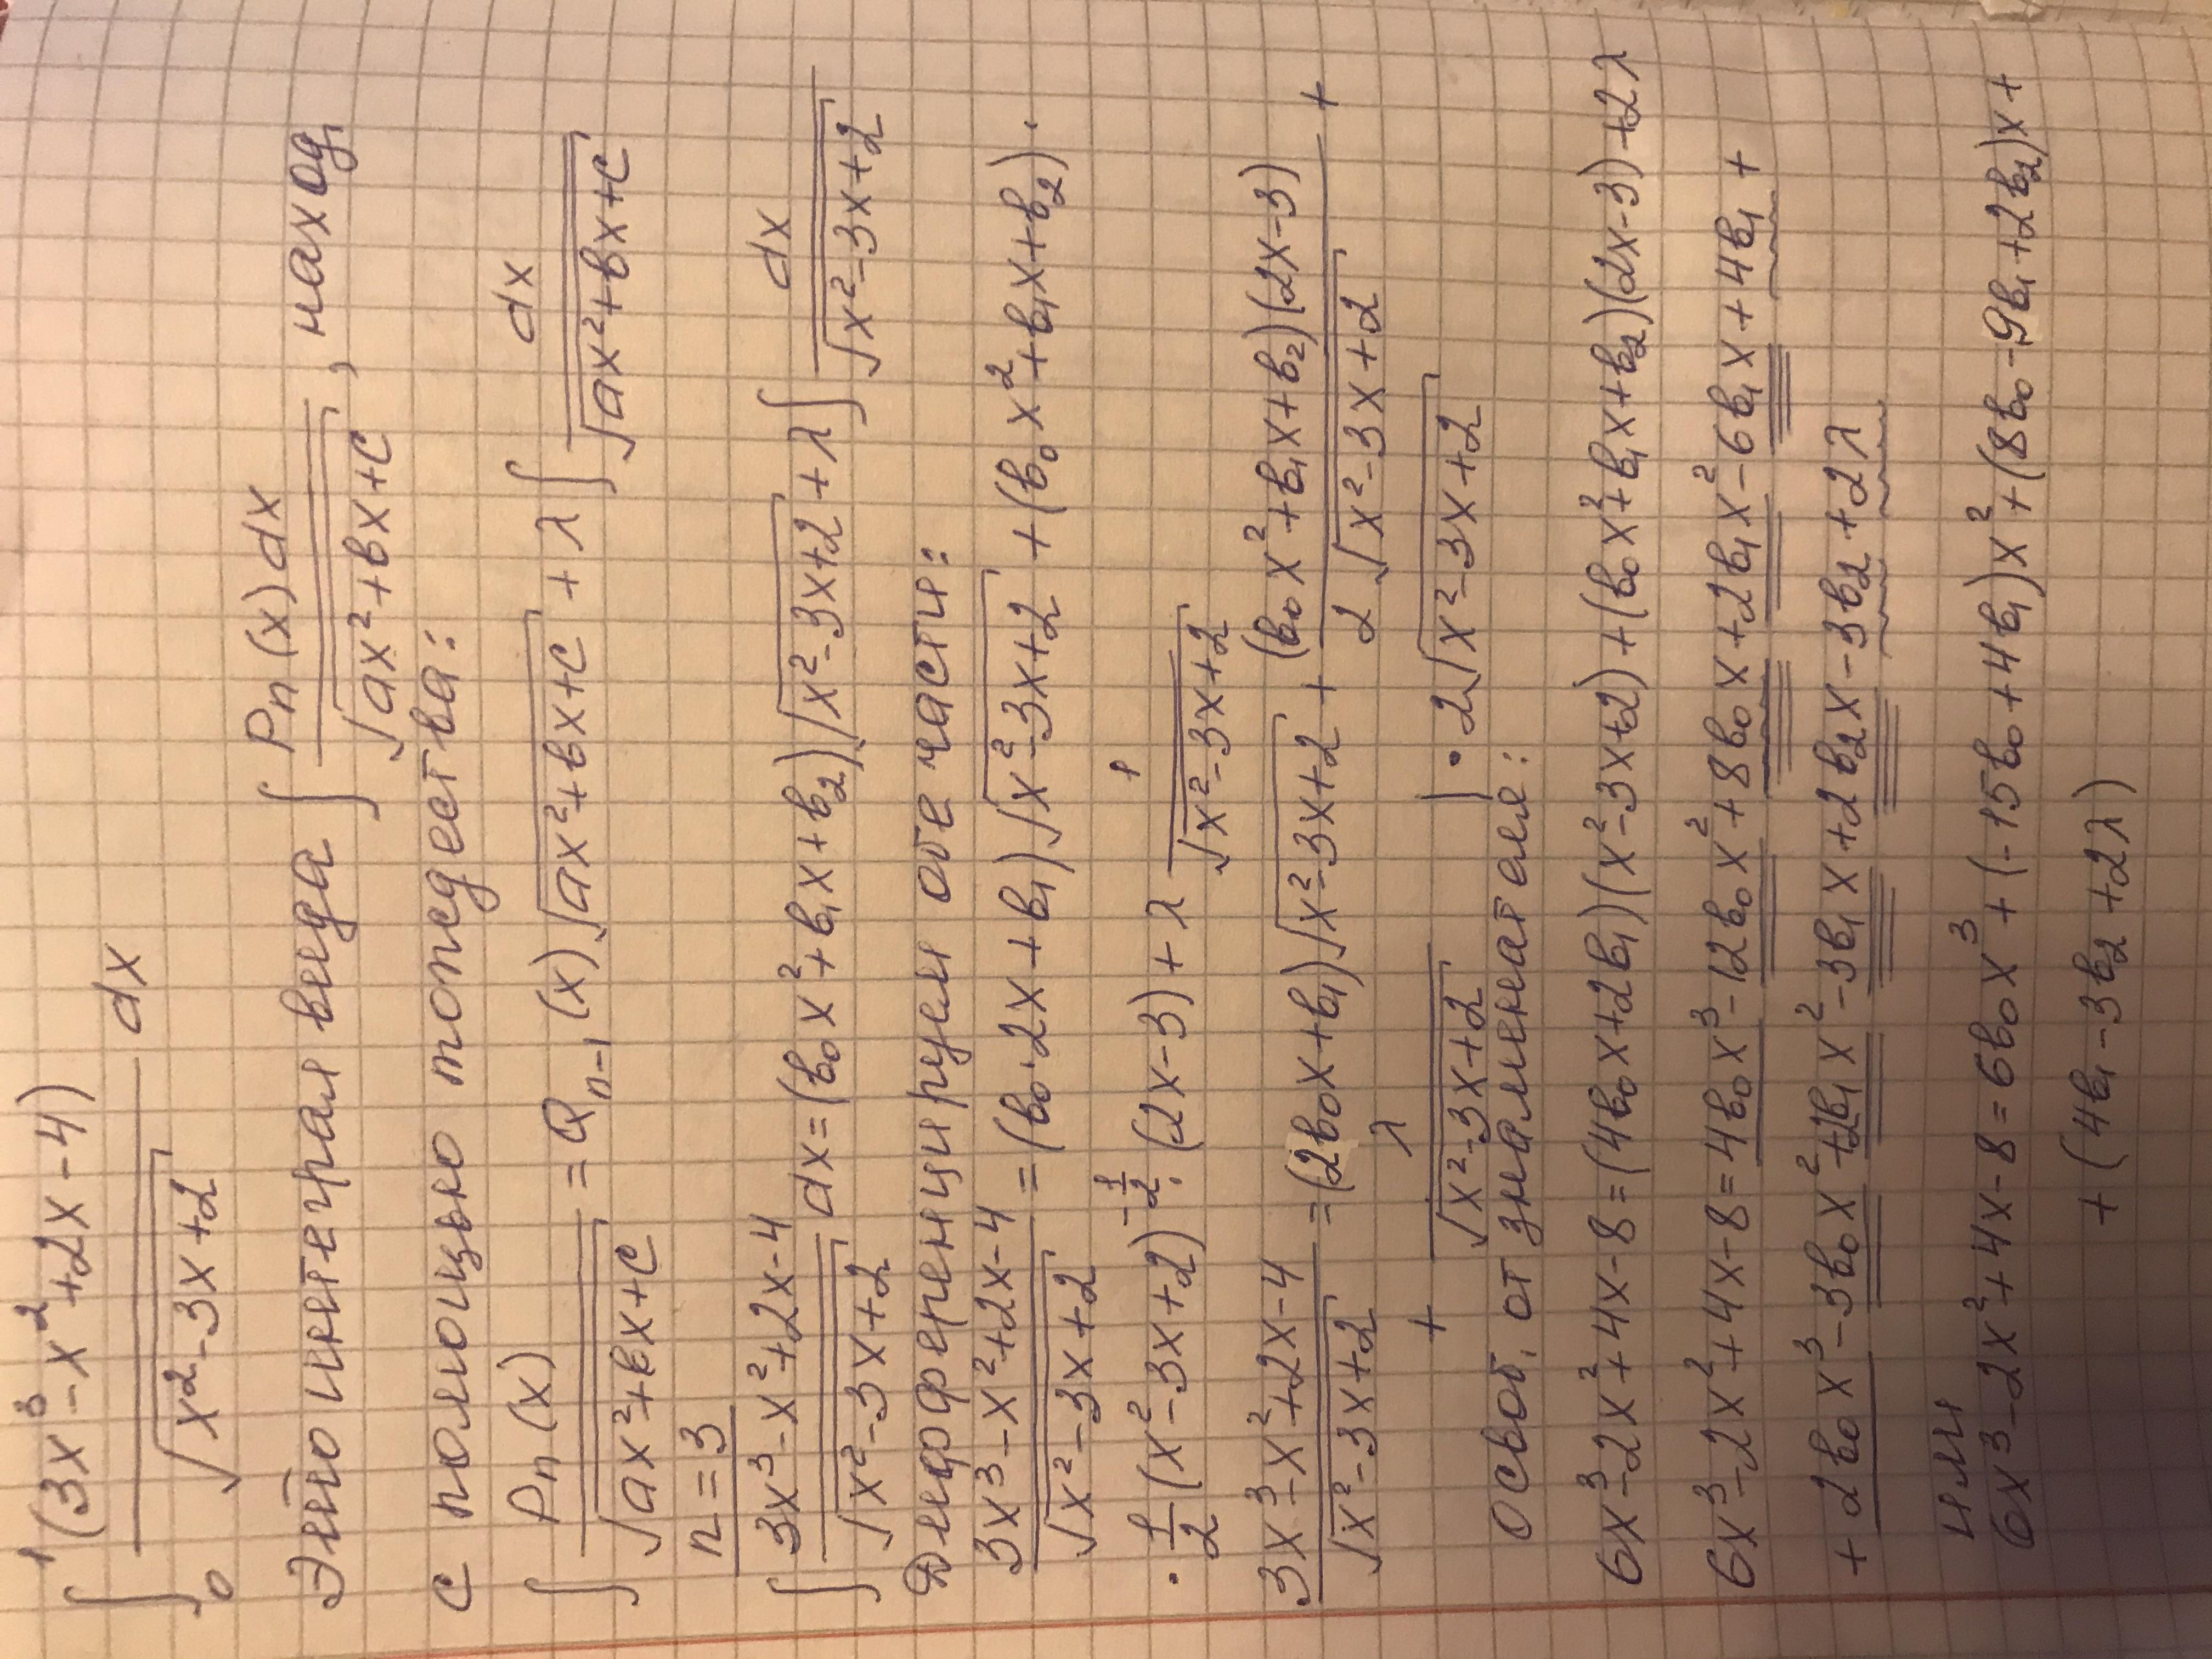 ∫₀¹ (3x³-x²+2x-4)/√(x²-3x+2) dx
Это интеграл вида ∫ Pn(x)dx/√(ax²+bx+c), наход.
с помощью тождества:
∫ Pn(x)/√(ax²+bx+c) = Qn-1(x)√(ax²+bx+c) + λ∫ dx/√(ax²+bx+c)
n=3
∫ (3x³-x²+2x-4)/√(x²-3x+2) dx=(b₀x²+b₁x+b₂)√(x²-3x+2)+λ∫ dx/√(x²-3x+2)
Дифференцируем обе части:
(3x³-x²+2x-4)/√(x²-3x+2) =(b₀·2x+b₁)√(x²-3x+2)+(b₀x²+b₁x+b₂)·
·1/2(x²-3x+2)^(-1/2)·(2x-3)+λ 1/√(x²-3x+2)
(3x³-x²+2x-4)/√(x²-3x+2) =(2b₀x+b₁)√(x²-3x+2)+ (b₀x²+b₁x+b₂)(2x-3)/(2√(x²-3x+2)) +
+ λ/√(x²-3x+2) |·2√(x²-3x+2)
Освоб. от знаменателя:
6x³-2x²+4x-8=(4b₀x+2b₁)(x²-3x+2)+(b₀x²+b₁x+b₂)(2x-3)+2λ
6x³-2x²+4x-8=4b₀x³-12b₀x²+8b₀x+2b₁x²-6b₁x+4b₁+
+2b₀x³-3b₀x²+2b₁x²-3b₁x+2b₂x-3b₂+2λ
или
6x³-2x²+4x-8=6b₀x³+(-15b₀+4b₁)x²+(8b₀-9b₁+2b₂)x+
+(4b₁-3b₂+2λ)